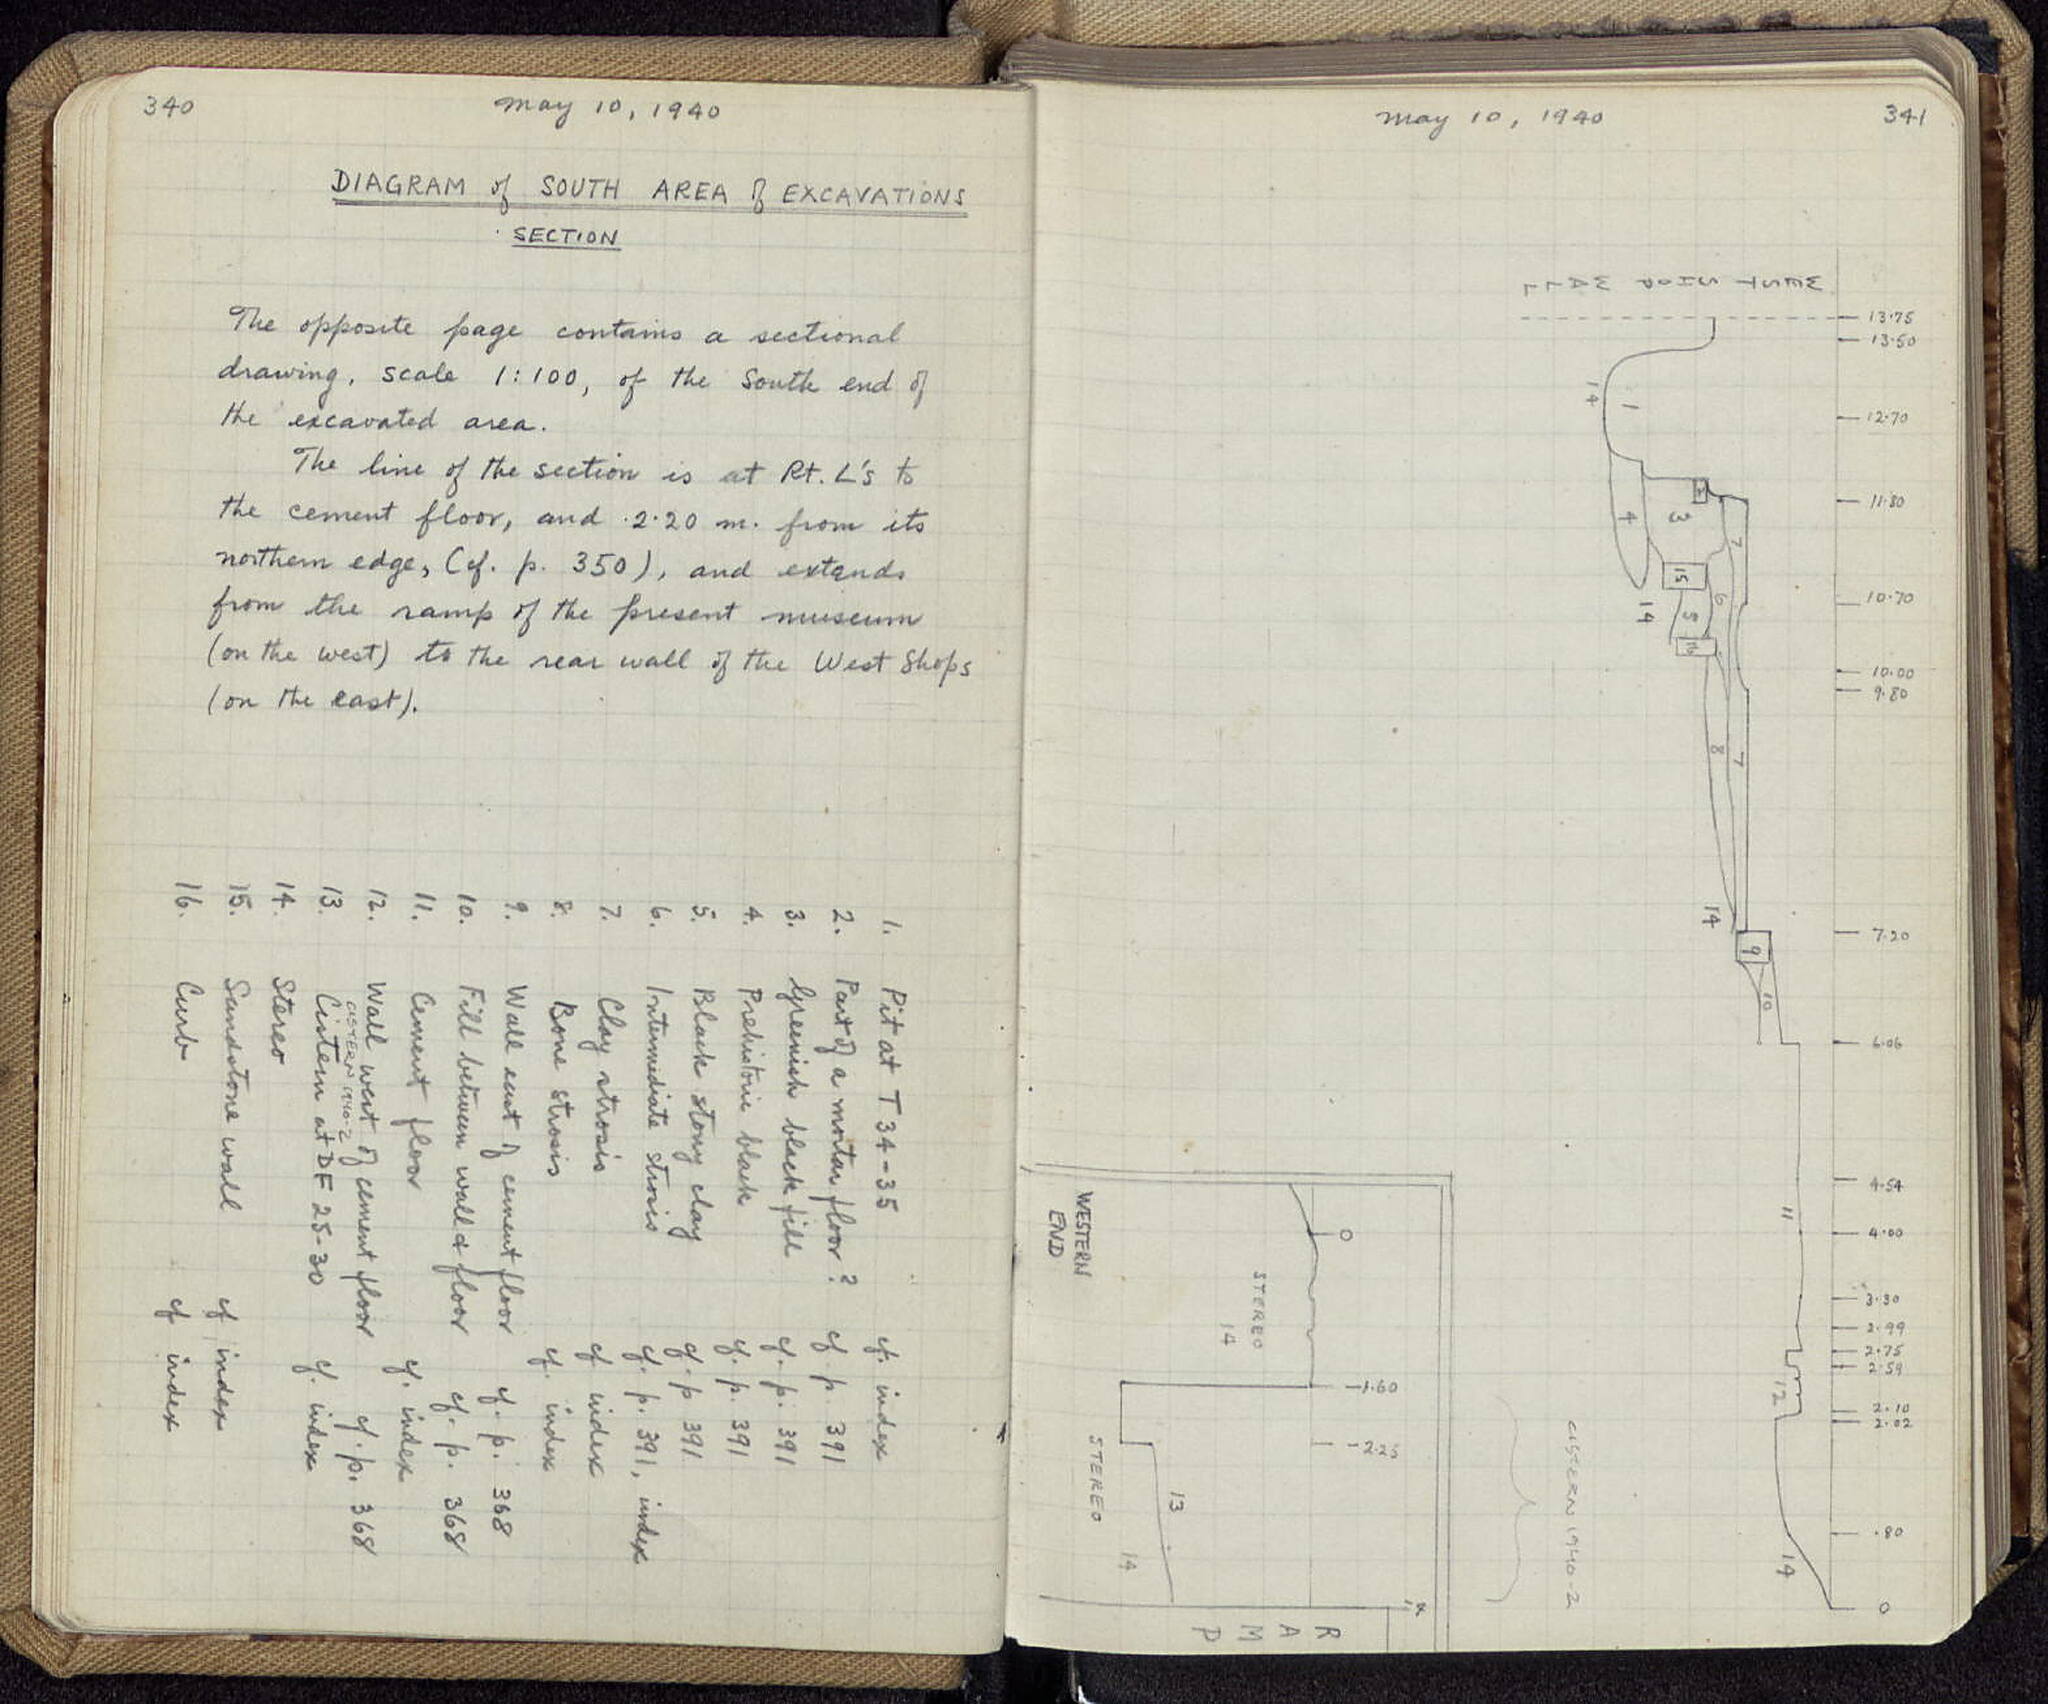 340
May 10, 1940
DIAGRAM of SOUTH AREA of EXCAVATIONS
SECTION
The opposite page contains a sectional
drawing, scale 1:100, of the South end of
the excavated area.
The line of the section is at Rt. L's to
the cement floor, and 2.20 m. from its
northern edge, (cf. p. 350), and extends
from the ramp of the present museum
(on the west) to the rear wall of the West Shops
(on the east).
1. Pit at T 34-35 cf. index
2. Part of a mortar floor? cf. p. 391
3. Greenish black fill cf. p. 391
4. Prehistoric black cf. p. 391
5. Black stony clay cf. p 391
6. Intermediate strosis cf. p. 391, index
7. Clay strosis cf. index
8. Bone strosis cf. index
9. Wall east of cement floor cf. p. 368
10. Fill between wall & floor cf. p. 368
11. Cement floor cf. index
12. Wall west of cement floor cf. p. 368
CISTERN 1940-2
13. Cistern at DF 25-30 cf. index
14. Stereo
15. Sandstone wall cf index
16. Curb cf index
May 10, 1940
341
WEST SHOP WALL
13.75
13.50
12.70
11.80
10.70
10.00
9.80
7.20
6.06
4.54
4.00
3.30
2.99
2.75
2.59
2.10
2.02
.80
0
14
1
4
3
7
15
6
14
5
16
8
7
14
9
10
11
12
14
WESTERN
END
0
STEREO
14
-1.60
-2.25
STEREO
13
14
RAMP
CISTERN 1940-2